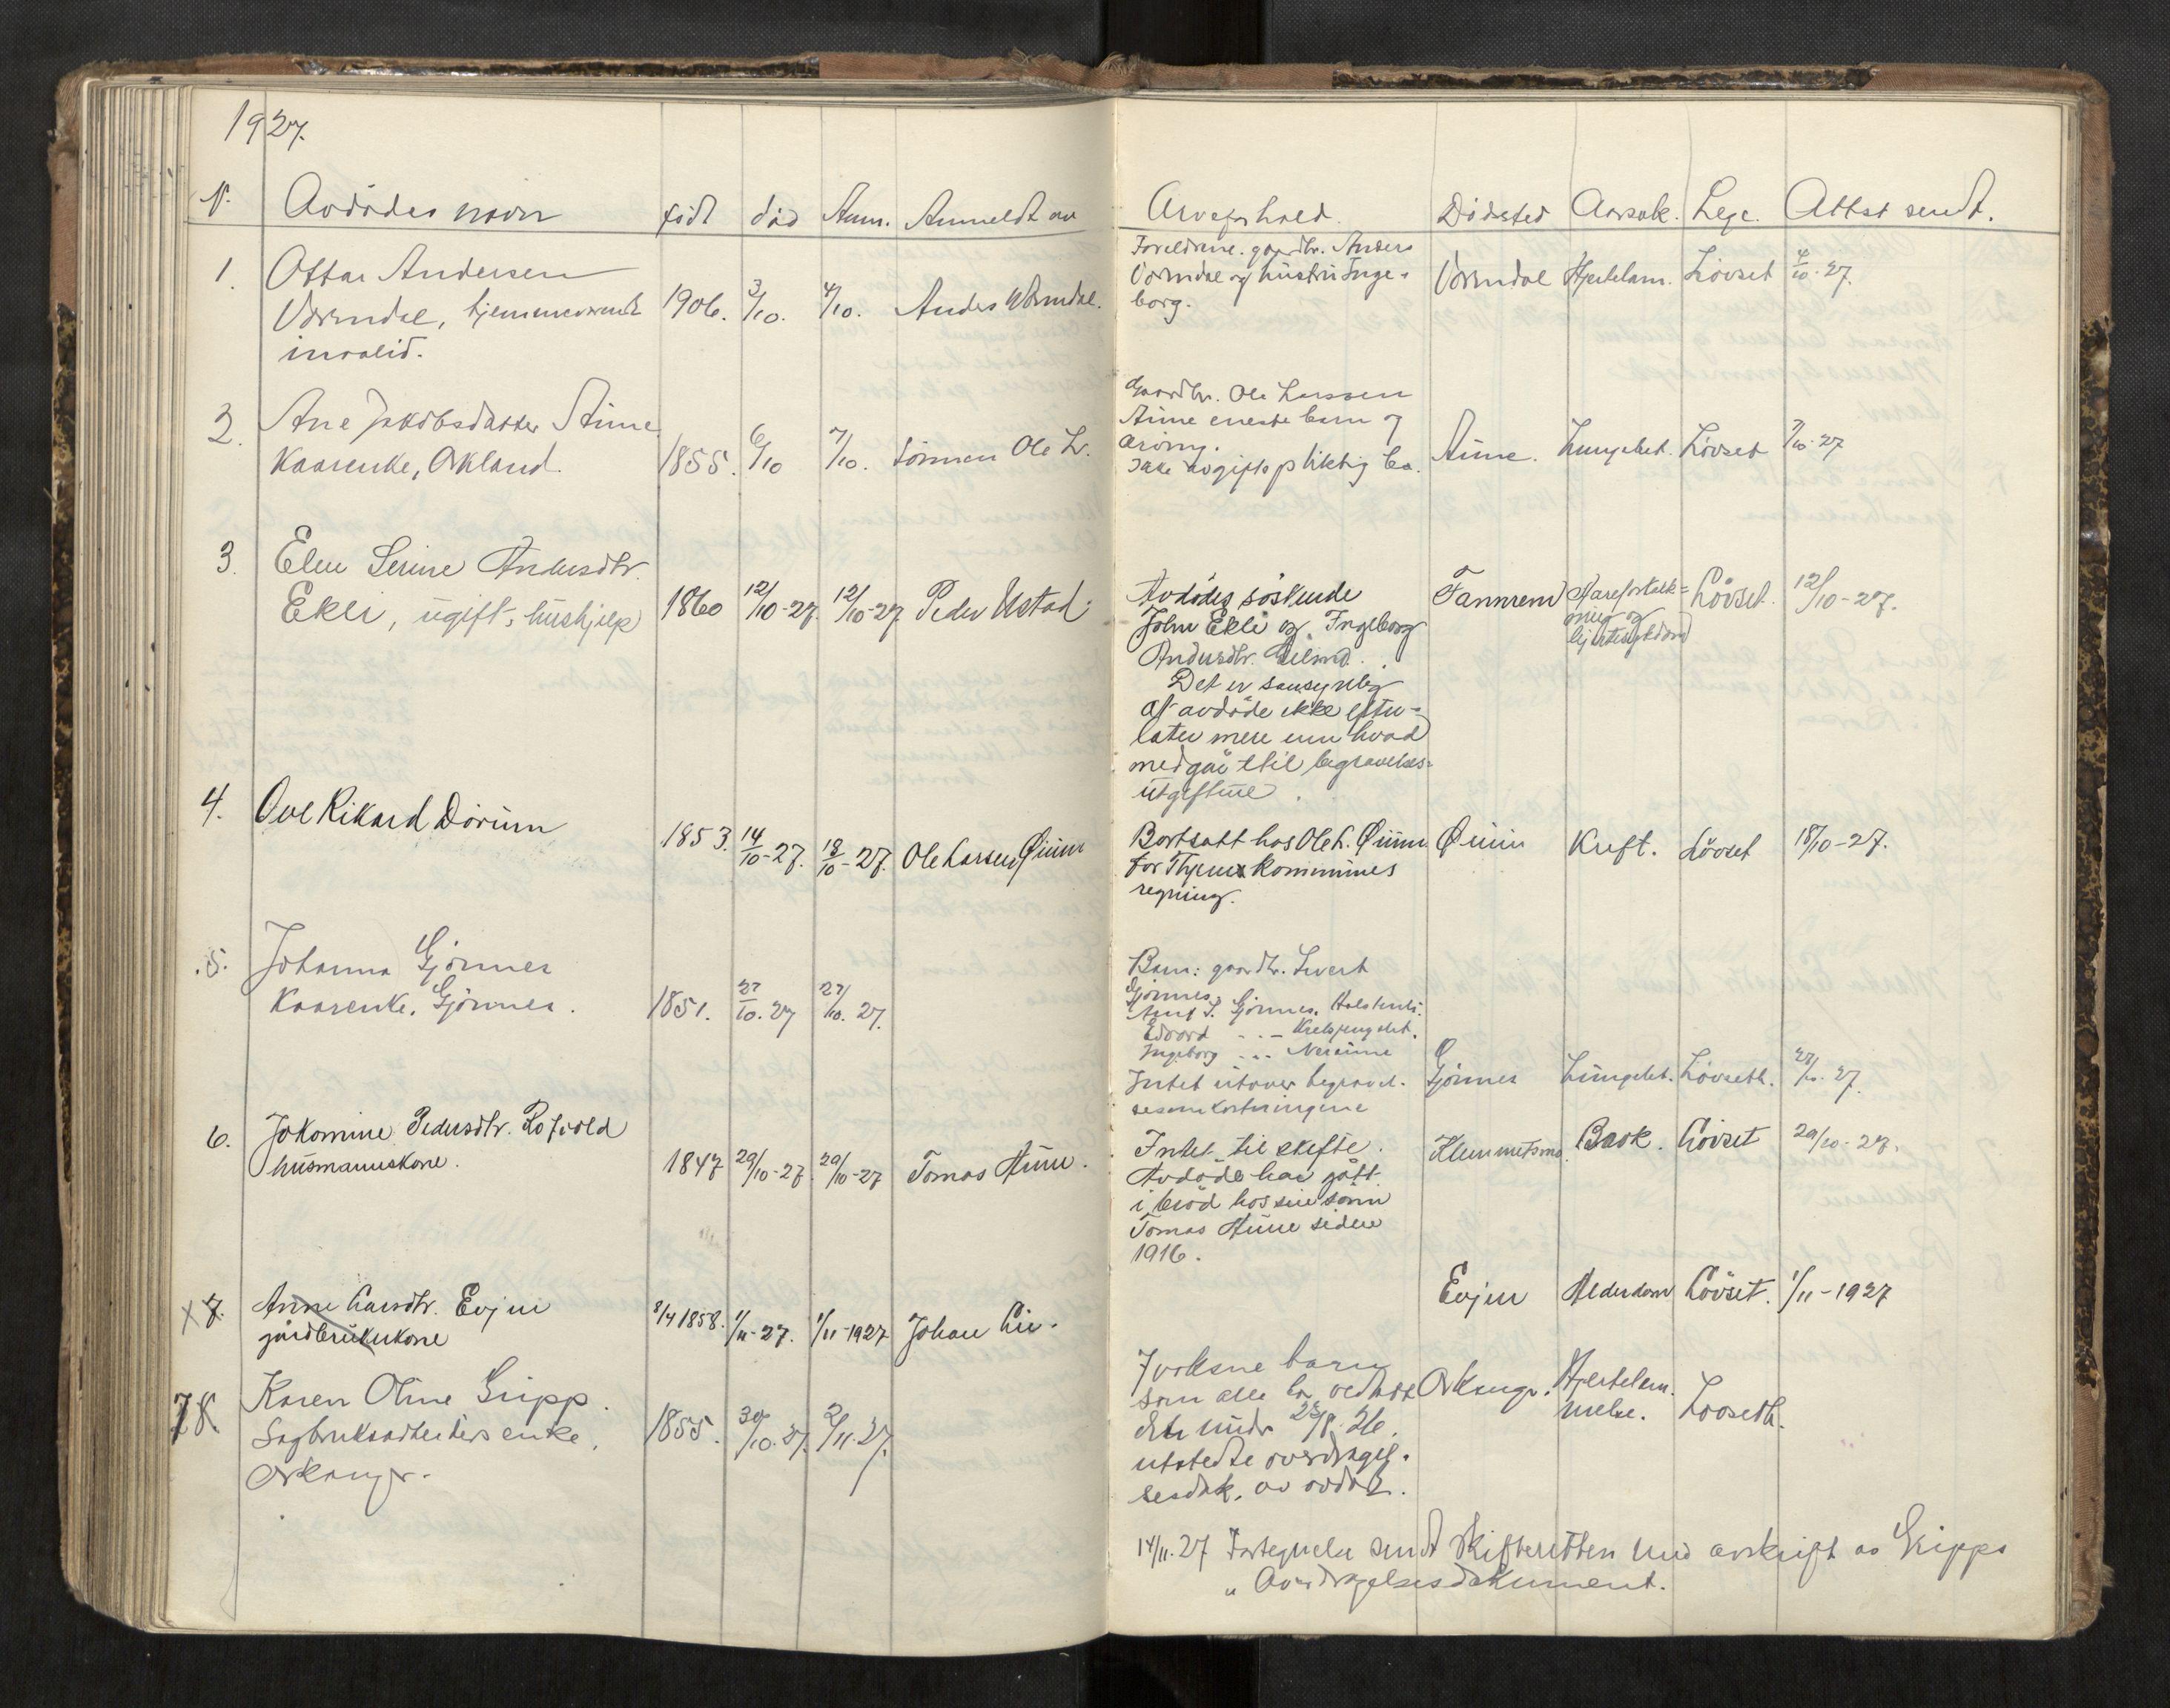 1927.
N. Avdödes navn födt död Anm. Anmeldt av Arveforhold. Dödssted Aarsak. Lege. Attest sendt.
1. Ottar Andersen
Vormdal, hjemmeværende
invalid.
1906. 3/10. 4/10. Anders Vormdal.
Foreldrene. gaardbr. Anders
Vormdal og hustru Inge-
borg.
Vormdal Hjertelam. Lövset 4/10. 27.
2. Ane Jakobsdatter Aune
Kaarenke, Orkland.
1855. 6/10 7/10. Sönnen Ole L.
Gaardbr. Ole Larssen
Aune eneste barn og
arving.
Ikke avgiftspliktig bo.
Aune. Lungebet. Lövset 7/10-27
3. Elen Serine Andersdtr.
Ekli, ugift, hushjelp
1860 12/10-27. 12/10-27 Peder Ustad
Avdödes söskende
John Ekli og Ingeborg
Andersdtr.
Det er sansynleg
at avdöde ikke efter-
later mere enn hvad
medgår til begravelses-
utgiftene.
Fannrem Åreforkalk-
ning og
hjertesykdom
Lövset. 12/10-27.
4. Ove Rikard Dörum
1853. 14/10-27. 18/10-27. Ole Larsen Øium
Bortsatt hos Ole L. Øium
for kommunes
regning.
Øium Kreft. Lövset 18/10-27.
5. Johanna Gjönnes
Kaarenke, Gjönnes.
1851. 27/10. 27 27/10. 27.
Barn: gaardbr. Sivert
Gjönnes,
Arnt S. Gjönnes,
Edvard - . -
Ingeborg - . -
Intet utover begravel-
sesomkostningene
Gjönnes Lungebet. Lövseth. 27/10. 27.
6. Jokomine Pedersdtr. Rofvold
husmannskone.
1847 29/10-27. 29/10-27 Tomas Aune.
Intet til skifte.
Avdöde har gått
i bröd hos sin sönn
Tomas Aune siden
1916.
Klemmetsmo. Brok. Lövset 29/10-27.
x 7. Anne Larsdtr. Evjen
gårdbrukerkone
8/4 1858. 1/11-27. 1/11-1927 Johan Lie.
Evjen Alderdom Lövset. 1/11-1927
7 8. Karen Oline Gripp.
Sagbruksarbeiders enke,
Orkanger.
1855. 30/10. 27. 2/11. 27.
7 voksne barn
som alle har vedtatt
det under 28/8. 26.
utstedte overdragel-
sesdok. av avdöde.
Orkanger. Hjertelam-
melse. Lövseth.
14/11. 27 Fortegnelse sendt Skifteretten med avskrift av Gripps
" Overdragelsesdokument.